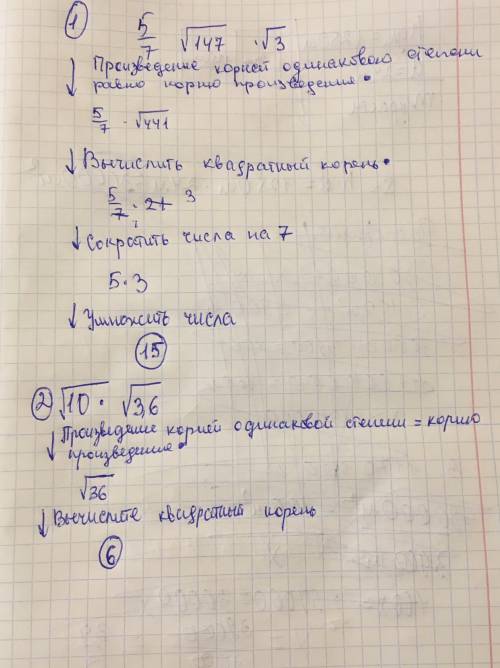 ① 5/7 √147 · √3
↓ Произведение корней одинакового степени
равно корню произведения.
5/7 · √441
↓ Вычислить квадратный корень.
5/7 · 21 3
1
↓ Сократить числа на 7
5 · 3
↓ Умножить числа
⑮
② √10 · √3,6
↓ Произведение корней одинаковой степени = корню
произведение.
√36
↓ Вычислите квадратный корень
⑥